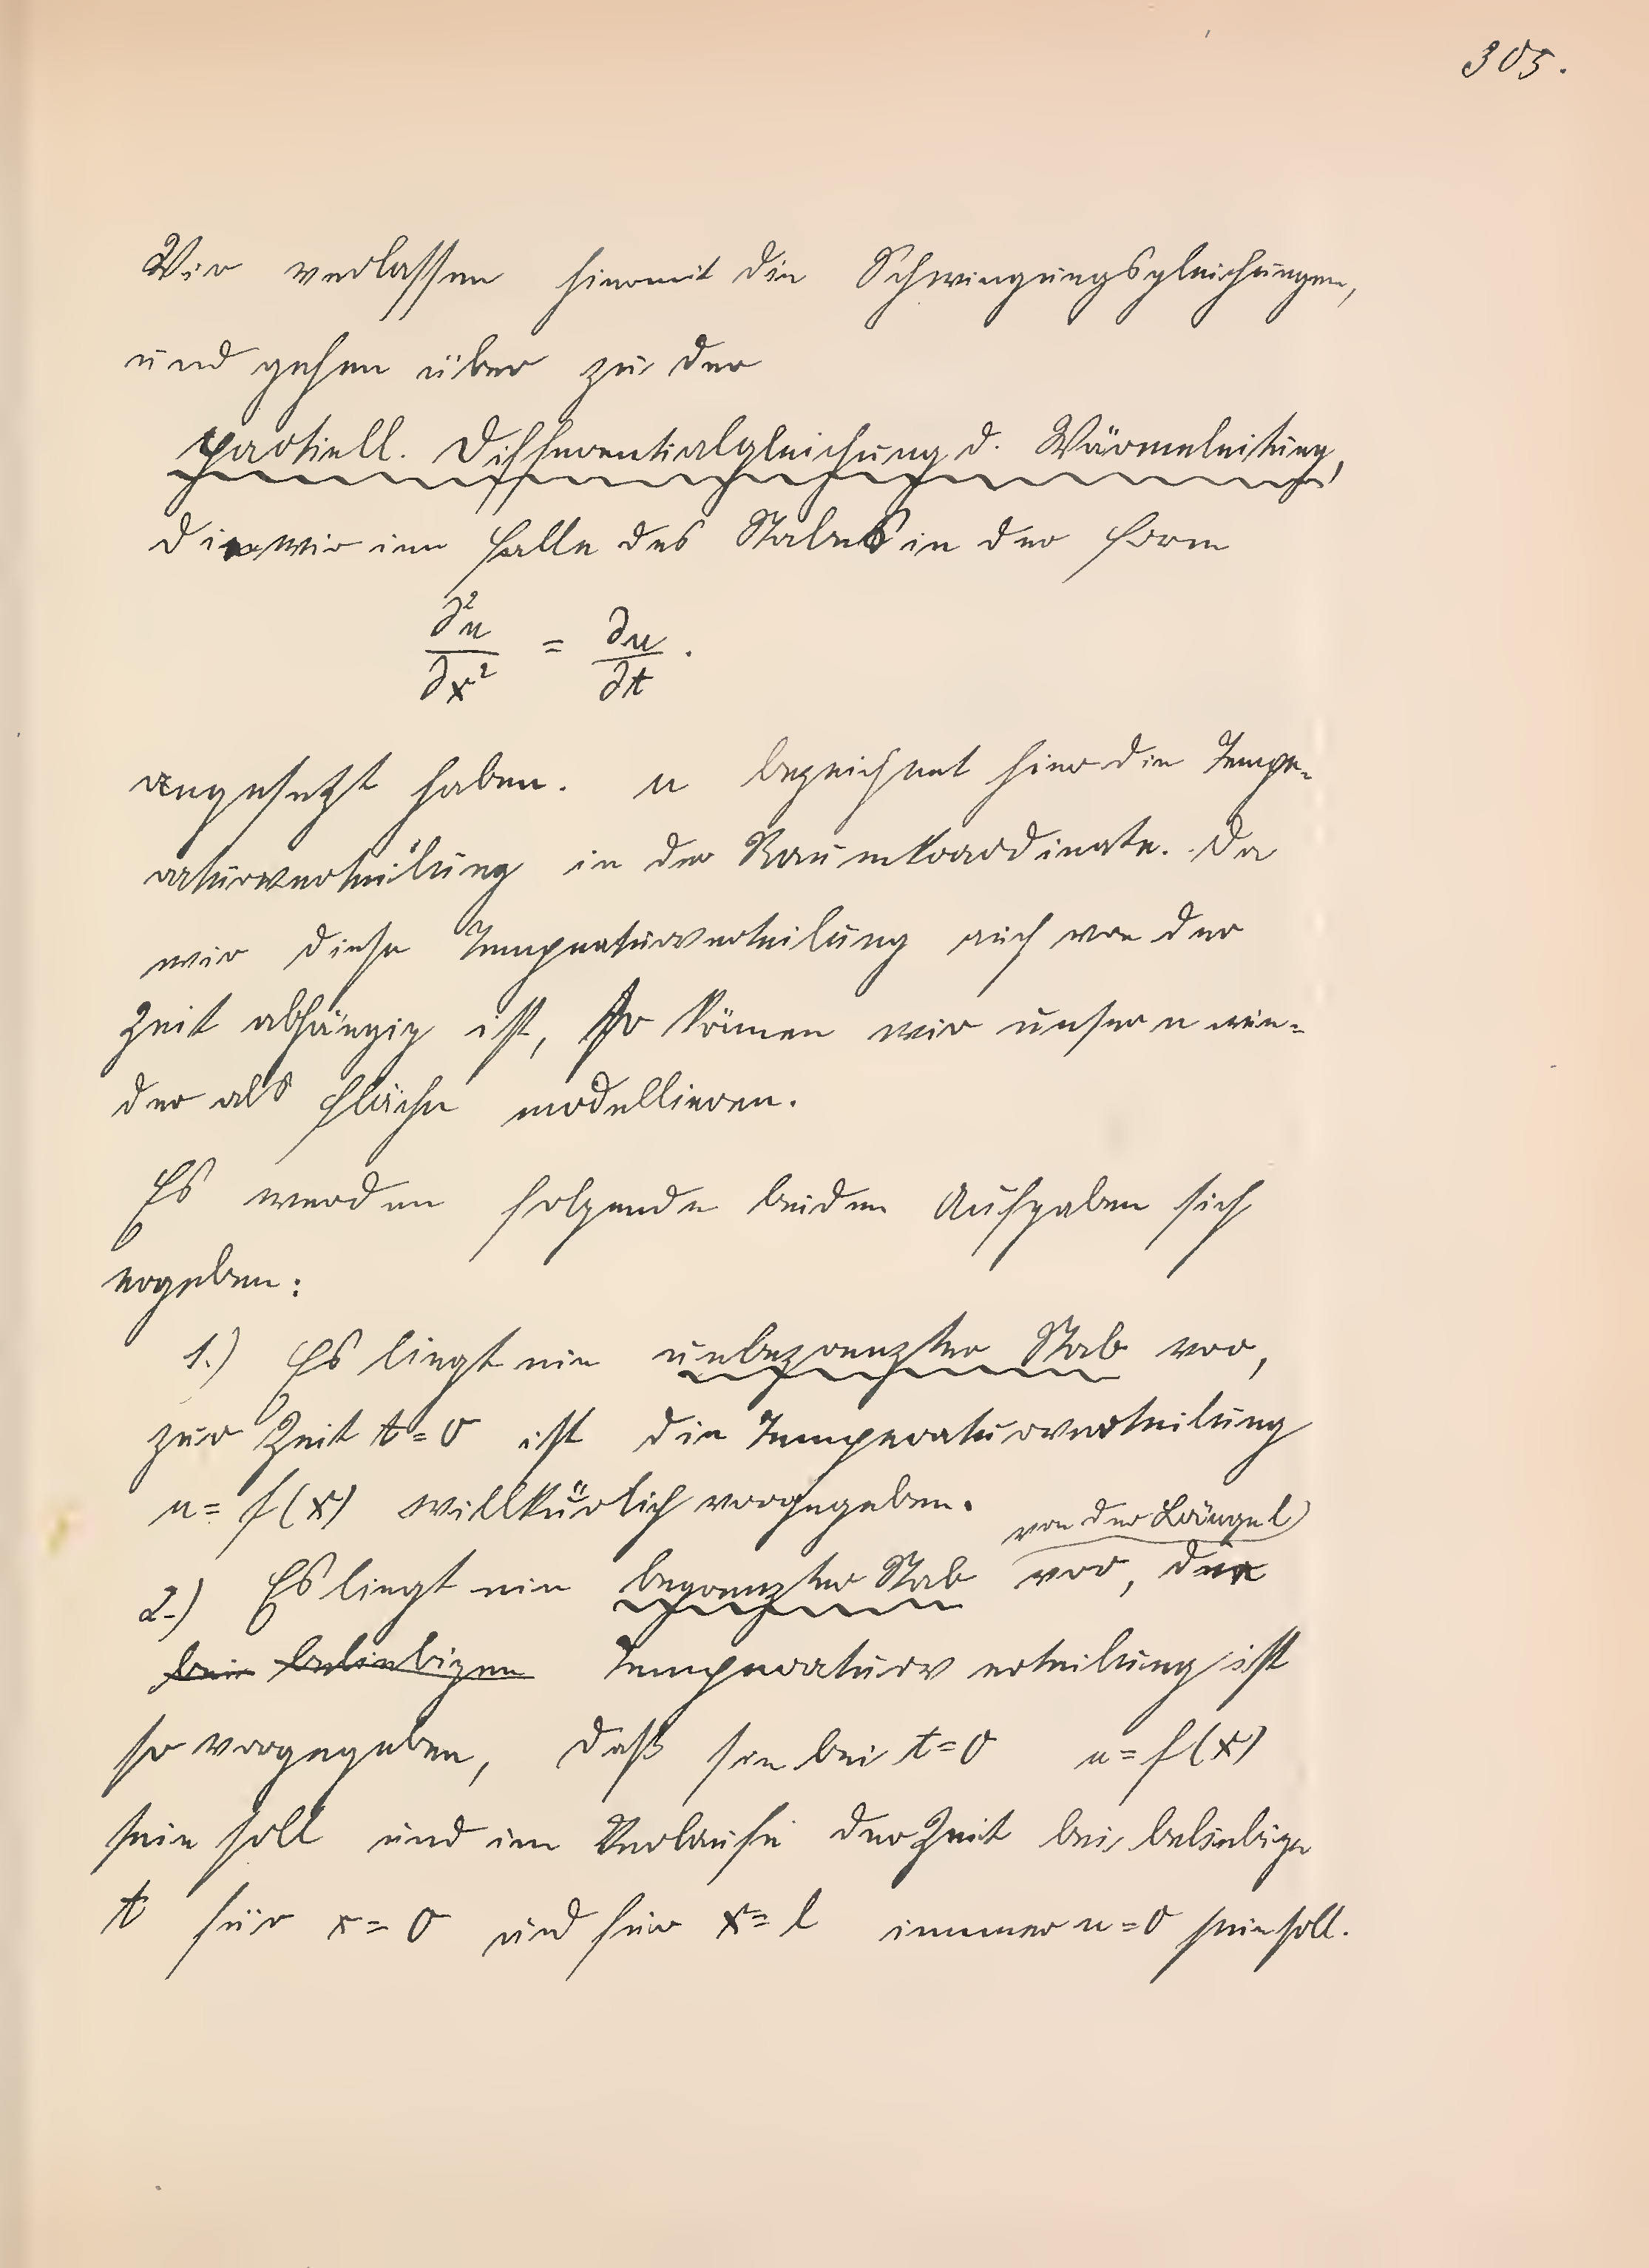 305.
Wir verlassen hiermit die Schwingungsgleichungen,
und gehen über zu der
partiell. Differentialgleichung d. Wärmeleitung,
die wir im Falle des Stabes in der Form
∂²u/∂x² = ∂u/∂t.
angesetzt haben. u bezeichnet hier die Tempe-
raturverteilung in der Raumkoordinate. Da
wir diese Temperaturverteilung auch von der
Zeit abhängig ist, so können wir unser u wie-
der als Fläche modellieren.
Es werden folgende beiden Aufgaben sich
ergeben:
1.) Es liegt ein unbegrenzter Stab vor,
zur Zeit t=0 ist die Temperaturverteilung
u= f(x) willkürlich vorgegeben.
von der Länge l
2.) Es liegt ein begrenzter Stab vor, der
bei beliebigen Temperaturverteilung ist
so vorgegeben, daß sie bei t=0 u=f(x)
sein soll und im Verlaufe der Zeit bei beliebige
t für x=0 und für x=l immer u=0 sein soll.